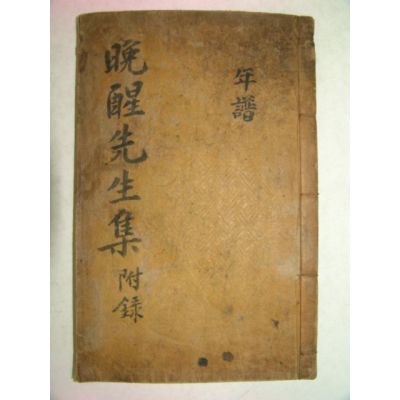 年譜
晩醒先生集 附録